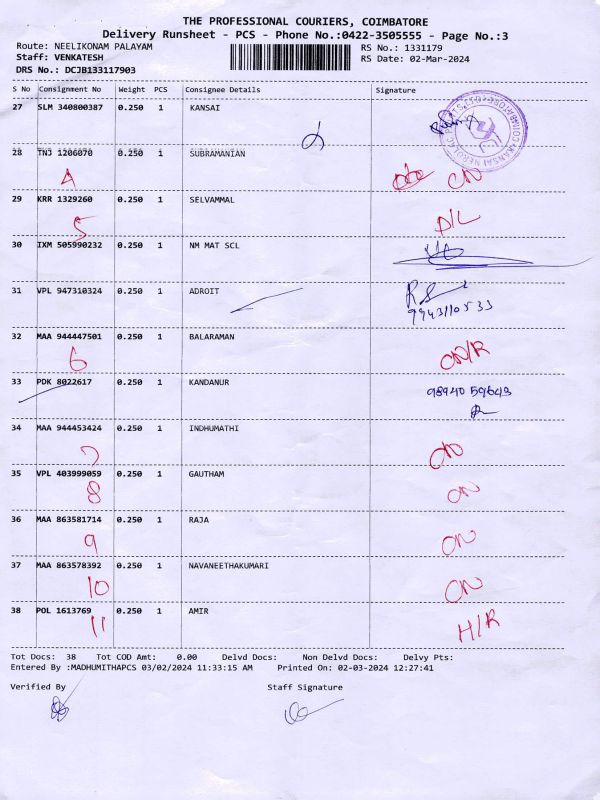 THE PROFESSIONAL COURIERS, COIMBATORE
Delivery Runsheet - PCS - Phone No.:0422-3505555 - Page No.:3
Route: NEELIKONAM PALAYAM RS No.: 1331179
Staff: VENKATESH RS Date: 02-Mar-2024
DRS No.: DCJB133117903
S No Consignment No Weight PCS Consignee Details Signature
27 SLM 340800387 0.250 1 KANSAI
28 TNJ 1206070 0.250 1 SUBRAMANIAN
4 CN
29 KRR 1329260 0.250 1 SELVAMMAL
5 D/L
30 IXM 505990232 0.250 1 NM MAT SCL
31 VPL 947310324 0.250 1 ADROIT
9943110533
32 MAA 944447501 0.250 1 BALARAMAN
6 CN/R
33 PDK 8022617 0.250 1 KANDANUR
98940 59643
34 MAA 944453424 0.250 1 INDHUMATHI
7 CN
35 VPL 403999059 0.250 1 GAUTHAM
8 CN
36 MAA 863581714 0.250 1 RAJA
9 CN
37 MAA 863578392 0.250 1 NAVANEETHAKUMARI
10 CN
38 POL 1613769 0.250 1 AMIR
11 H/R
Tot Docs: 38 Tot COD Amt: 0.00 Delvd Docs: Non Delvd Docs: Delvy Pts:
Entered By :MADHUMITHAPCS 03/02/2024 11:33:15 AM Printed On: 02-03-2024 12:27:41
Verified By Staff Signature